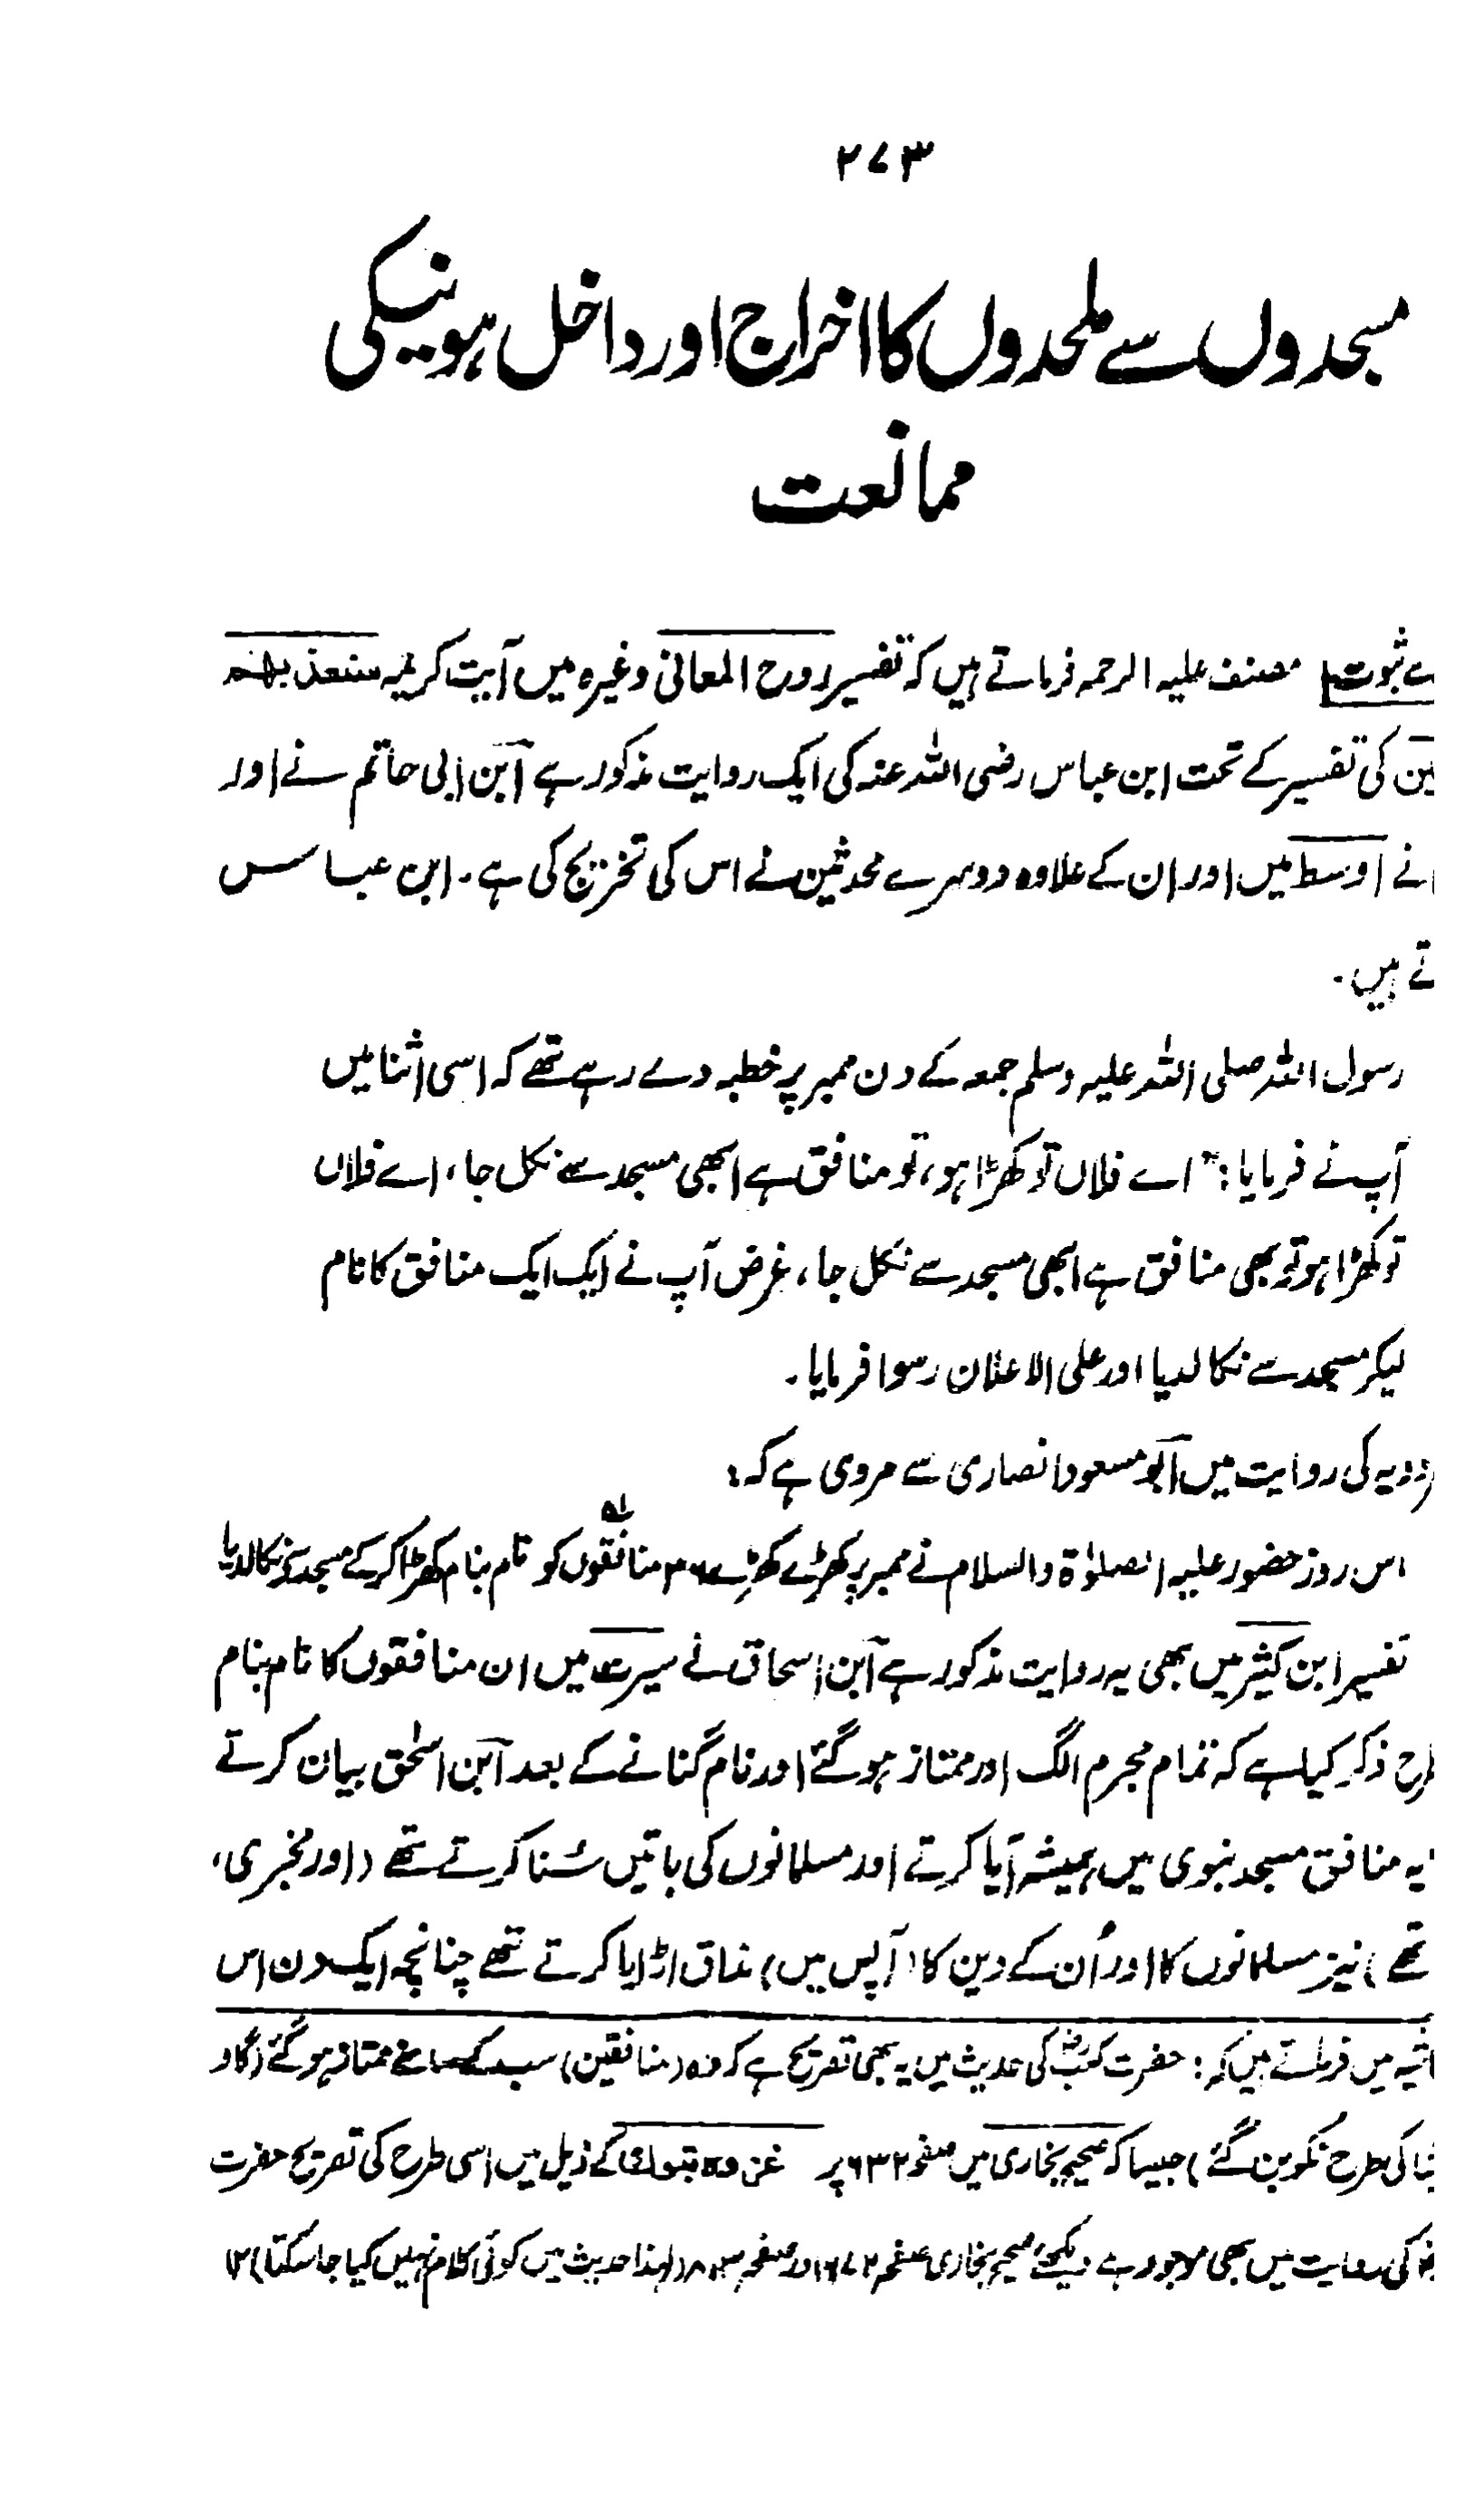 ۲۷۳
مسجدوں سے ملحدوں کا اخراج اور داخل ہونیکی
ممانعت
سے ثبوت مصنف علیہ الرحمہ فرماتے ہیں کہ تفسیر روح المعانی وغیرہ میں آیت کریمہ سنعذبهم
کی تفسیر کے تحت ابن عباس رضی اللہ عنہ کی ایک روایت مذکور ہے ابن ابی حاتم نے اور
نے اوسط میں اور ان کے علاوہ دوسرے محدثین نے اس کی تخریج کی ہے۔ ابن عباس
تے ہیں۔
رسول اللہ صلی اللہ علیہ وسلم جمعہ کے دن ممبر پر خطبہ دے رہے تھے کہ اسی اثنا میں
آپ نے فرمایا: "اے فلاں تو کھڑا ہو، تو منافق ہے ابھی مسجد سے نکل جا، اے فلاں
تو کھڑا ہو تو بھی منافق ہے ابھی مسجد سے نکل جا، غرض آپ نے ایک ایک منافق کا نام
لیکر مسجد سے نکالدیا اور علی الاعلان رسوا فرمایا۔
کی روایت میں ابو مسعود انصاری سے مروی ہے کہ:
اس روز حضور علیہ الصلوٰۃ والسلام نے ممبر پر کھڑے کھڑے ۳۶ منافقوں کو نام بنام کھڑا کر کے مسجد سے نکالدیا
تفسیر ابن کثیر میں بھی یہ روایت مذکور ہے ابن اسحاق نے سیرت میں ان منافقوں کا نام بنام
ذکر کیا ہے کہ تمام مجرم الگ اور ممتاز ہو گئے اور نام گنانے کے بعد ابن اسحٰق بیان کرتے
یہ منافق مسجد نبوی میں ہمیشہ آیا کرتے اور مسلمانوں کی باتیں سُنا کرتے تھے (اور مخبری
تھے) نیز مسلمانوں کا اور اُن کے دین کا (آپس میں) مذاق اڑایا کرتے تھے چنانچہ ایک دن اس
میں فرماتے ہیں کہ: حضرت کعبؓ کی حدیث میں یہ بھی تصریح ہے کہ وہ (منافقین) سب کے سامنے ممتاز ہو گئے
کی طرح بن گئے) جیسا کہ صحیح بخاری میں صفحہ ۶۳۲ پر غزوہ تبوک کے ذیل میں اسی طرح کی تصریح حضرت
کی روایت میں بھی موجود ہے۔ دیکھئے صحیح بخاری صفحہ (لہذا حدیث میں کوئی کلام نہیں کیا جا سکتا) ۱۲